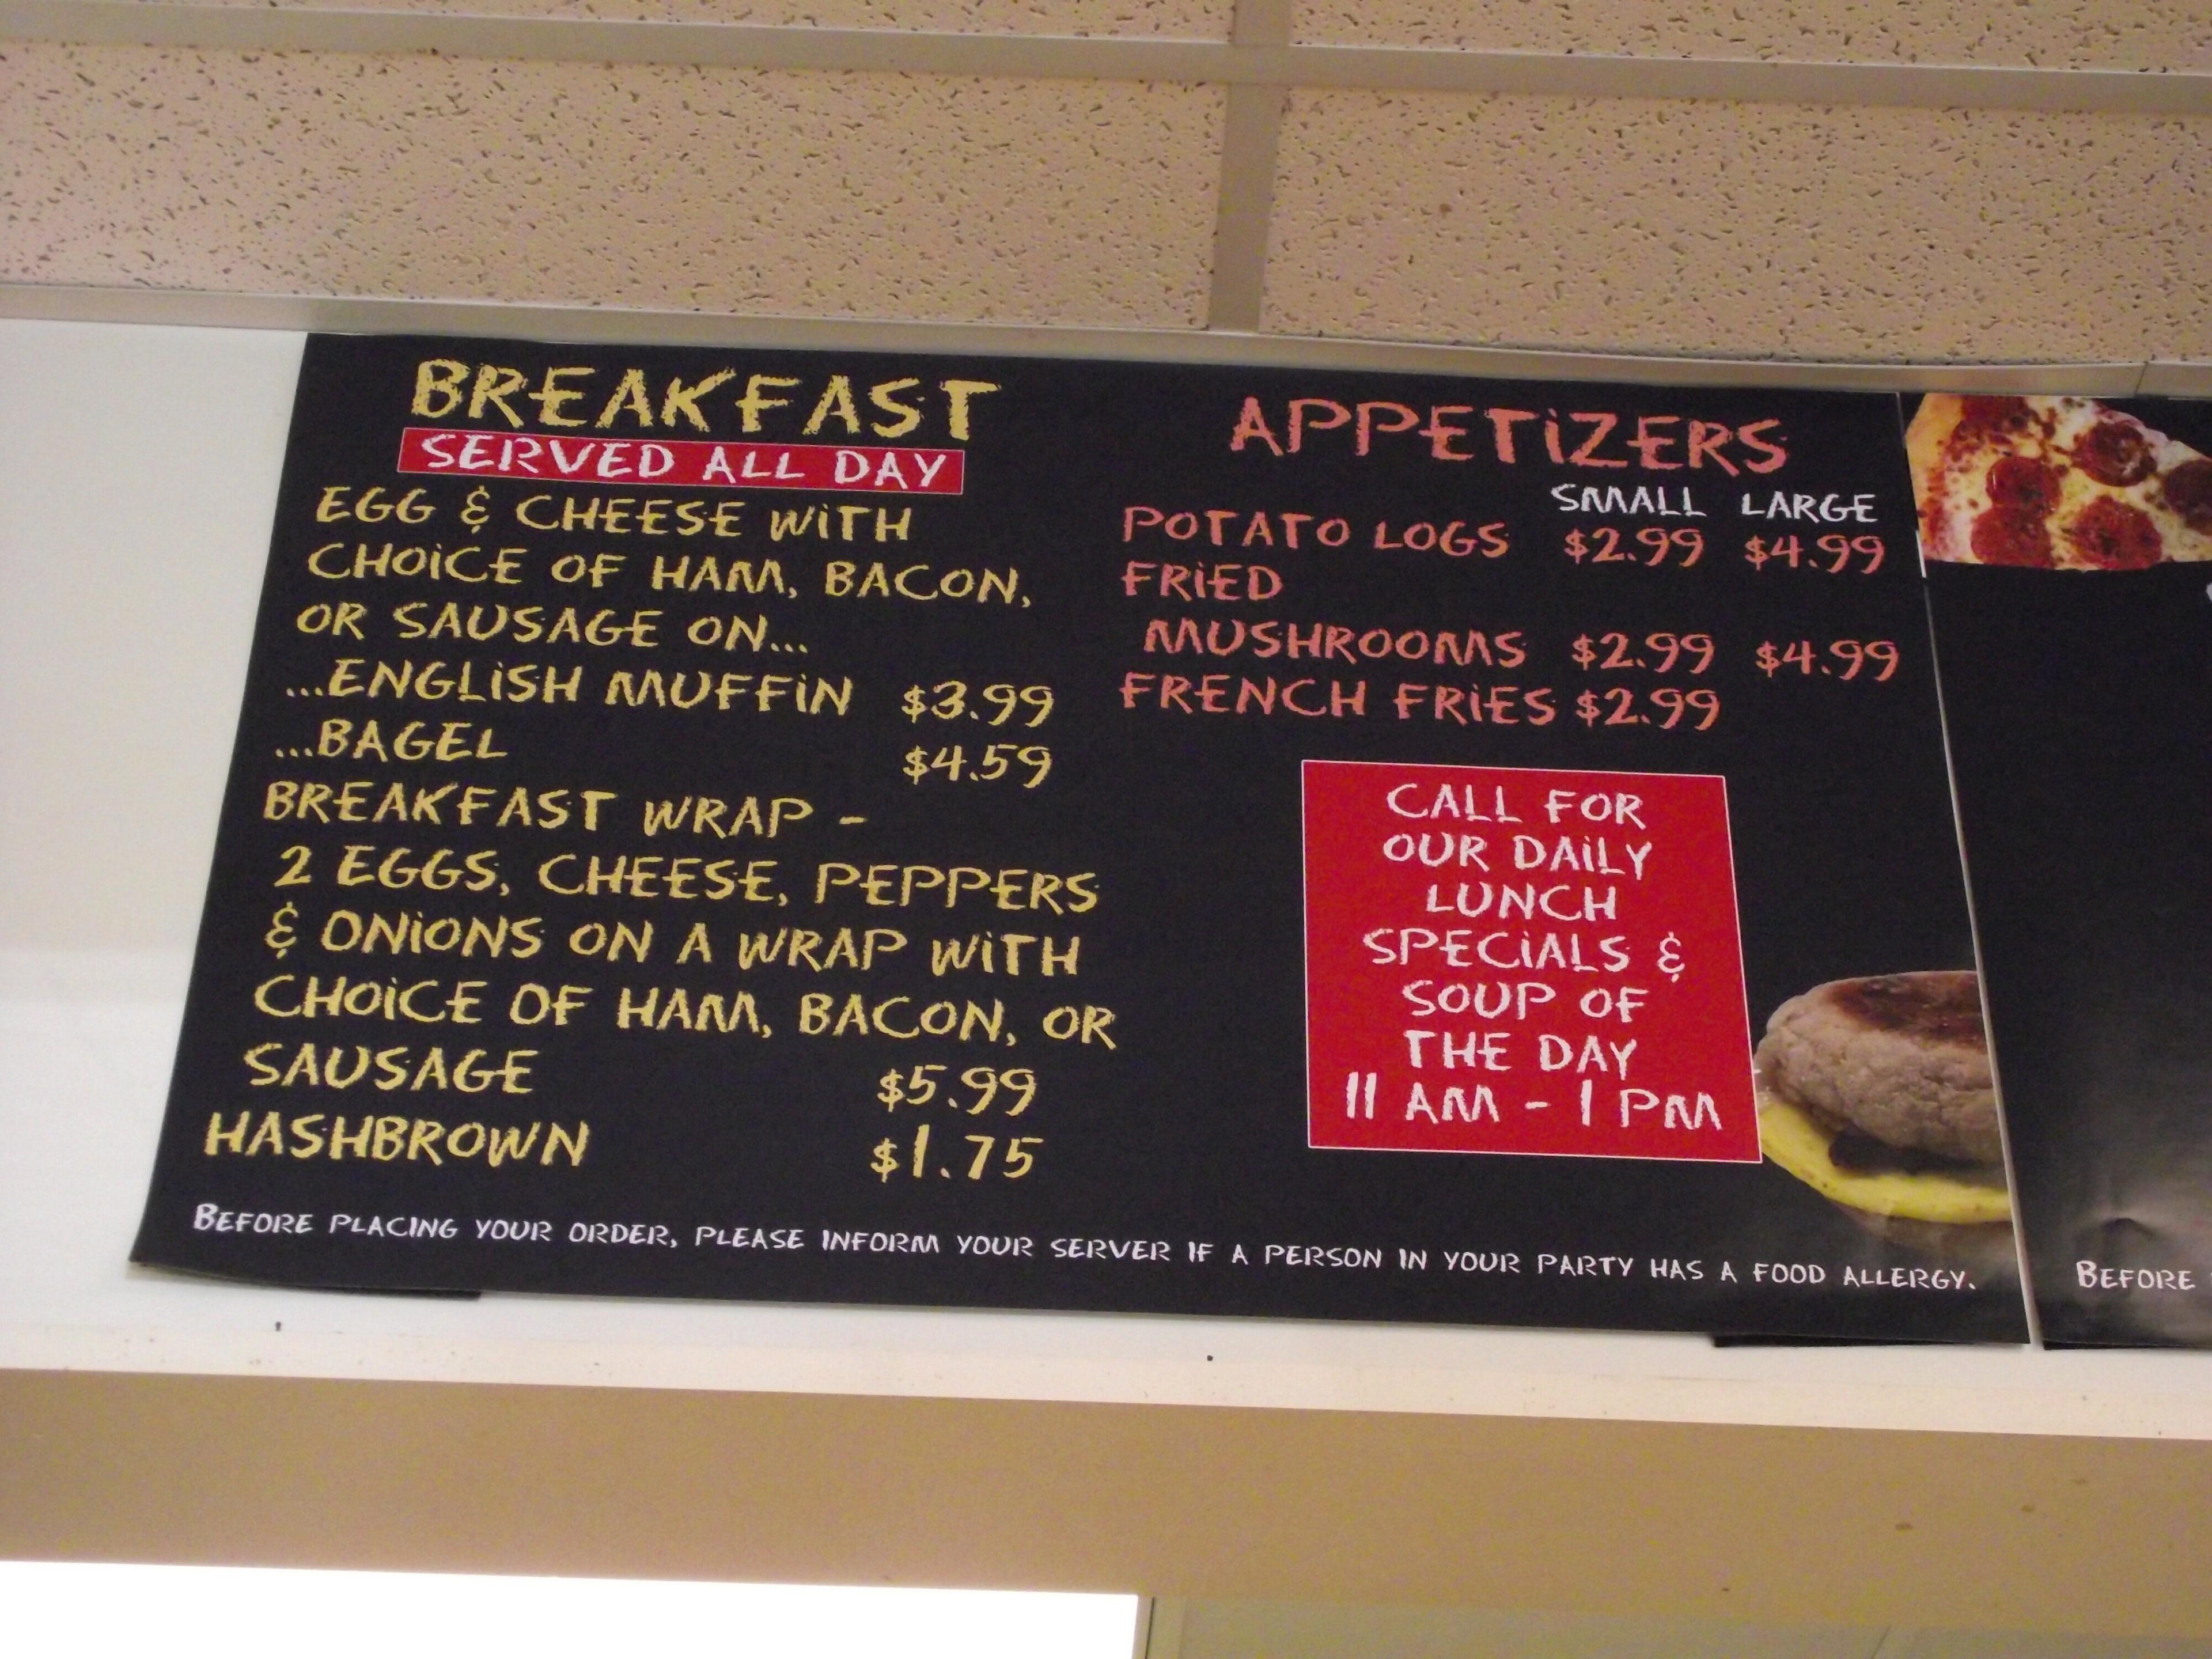 BREAKFAST
SERVED ALL DAY
EGG & CHEESE WITH
CHOICE OF HAM, BACON,
OR SAUSAGE ON...
...ENGLISH MUFFIN $3.99
...BAGEL $4.59
BREAKFAST WRAP -
2 EGGS, CHEESE, PEPPERS
& ONIONS ON A WRAP WITH
CHOICE OF HAM, BACON, OR
SAUSAGE $5.99
HASHBROWN $1.75
APPETIZERS
SMALL LARGE
POTATO LOGS $2.99 $4.99
FRIED
MUSHROOMS $2.99 $4.99
FRENCH FRIES $2.99
CALL FOR
OUR DAILY
LUNCH
SPECIALS &
SOUP OF
THE DAY
11 AM - 1 PM
BEFORE PLACING YOUR ORDER, PLEASE INFORM YOUR SERVER IF A PERSON IN YOUR PARTY HAS A FOOD ALLERGY.
BEFORE